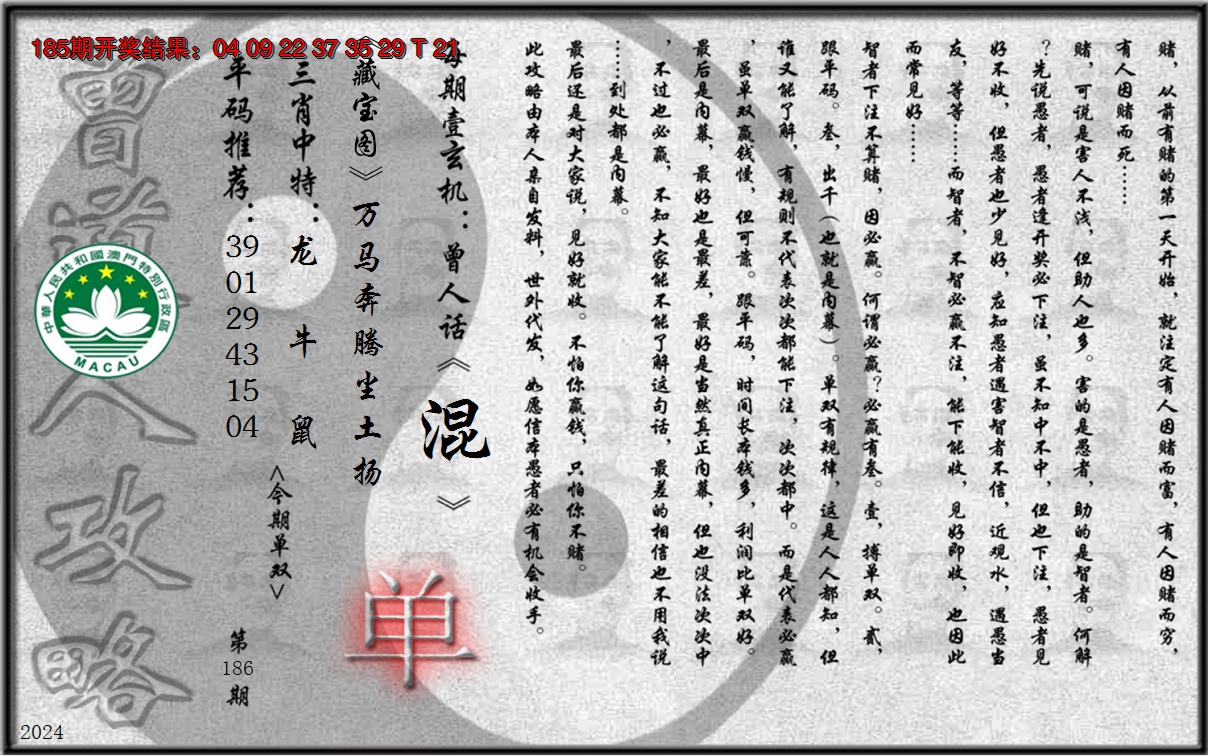 185期开奖结果：04 09 22 37 35 29 T 21
赌，从前有赌的第一天开始，就注定有人因赌而富，有人因赌而穷，
有人因赌而死……
赌，可说是害人不浅，但助人也多。害的是愚者，助的是智者。何解
？先说愚者，愚者逢开奖必下注，虽不知中不中，但也下注，愚者见
好不收，但愚者也少见好，应知愚者遇害智者不信，近观水，遇愚当
友，等等……而智者，不智必赢不注，能下能收，见好即收，也因此
而常见好……
智者下注不算赌，因必赢。何谓必赢？必赢有叁。壹，搏单双。贰，
跟平码。叁，出千（也就是内幕）。单双有规律，这是人人都知，但
谁又能了解，有规则不代表次次都能下注，次次都中。而是代表必赢
，虽单双赢钱慢，但可靠。跟平码，时间长本钱多，利润比单双好。
最后是内幕，最好也是最差，最好是当然真正内幕，但也没法次次中
，不过也必赢，不知大家能不能了解这句话，最差的相信也不用我说
……到处都是内幕。
最后还是对大家说，见好就收。不怕你赢钱，只怕你不赌。
此攻略由本人亲自发料，世外代发，如愿信本愚者必有机会收手。
每期壹玄机：曾人话《混》
《藏宝图》万马奔腾尘土扬
单
三肖中特：龙 牛 鼠
<今期单双>
平码推荐：
39
01
29
43
15
04
第
186
期
曾道人攻略
中華人民共和國澳門特別行政區
MACAU
2024